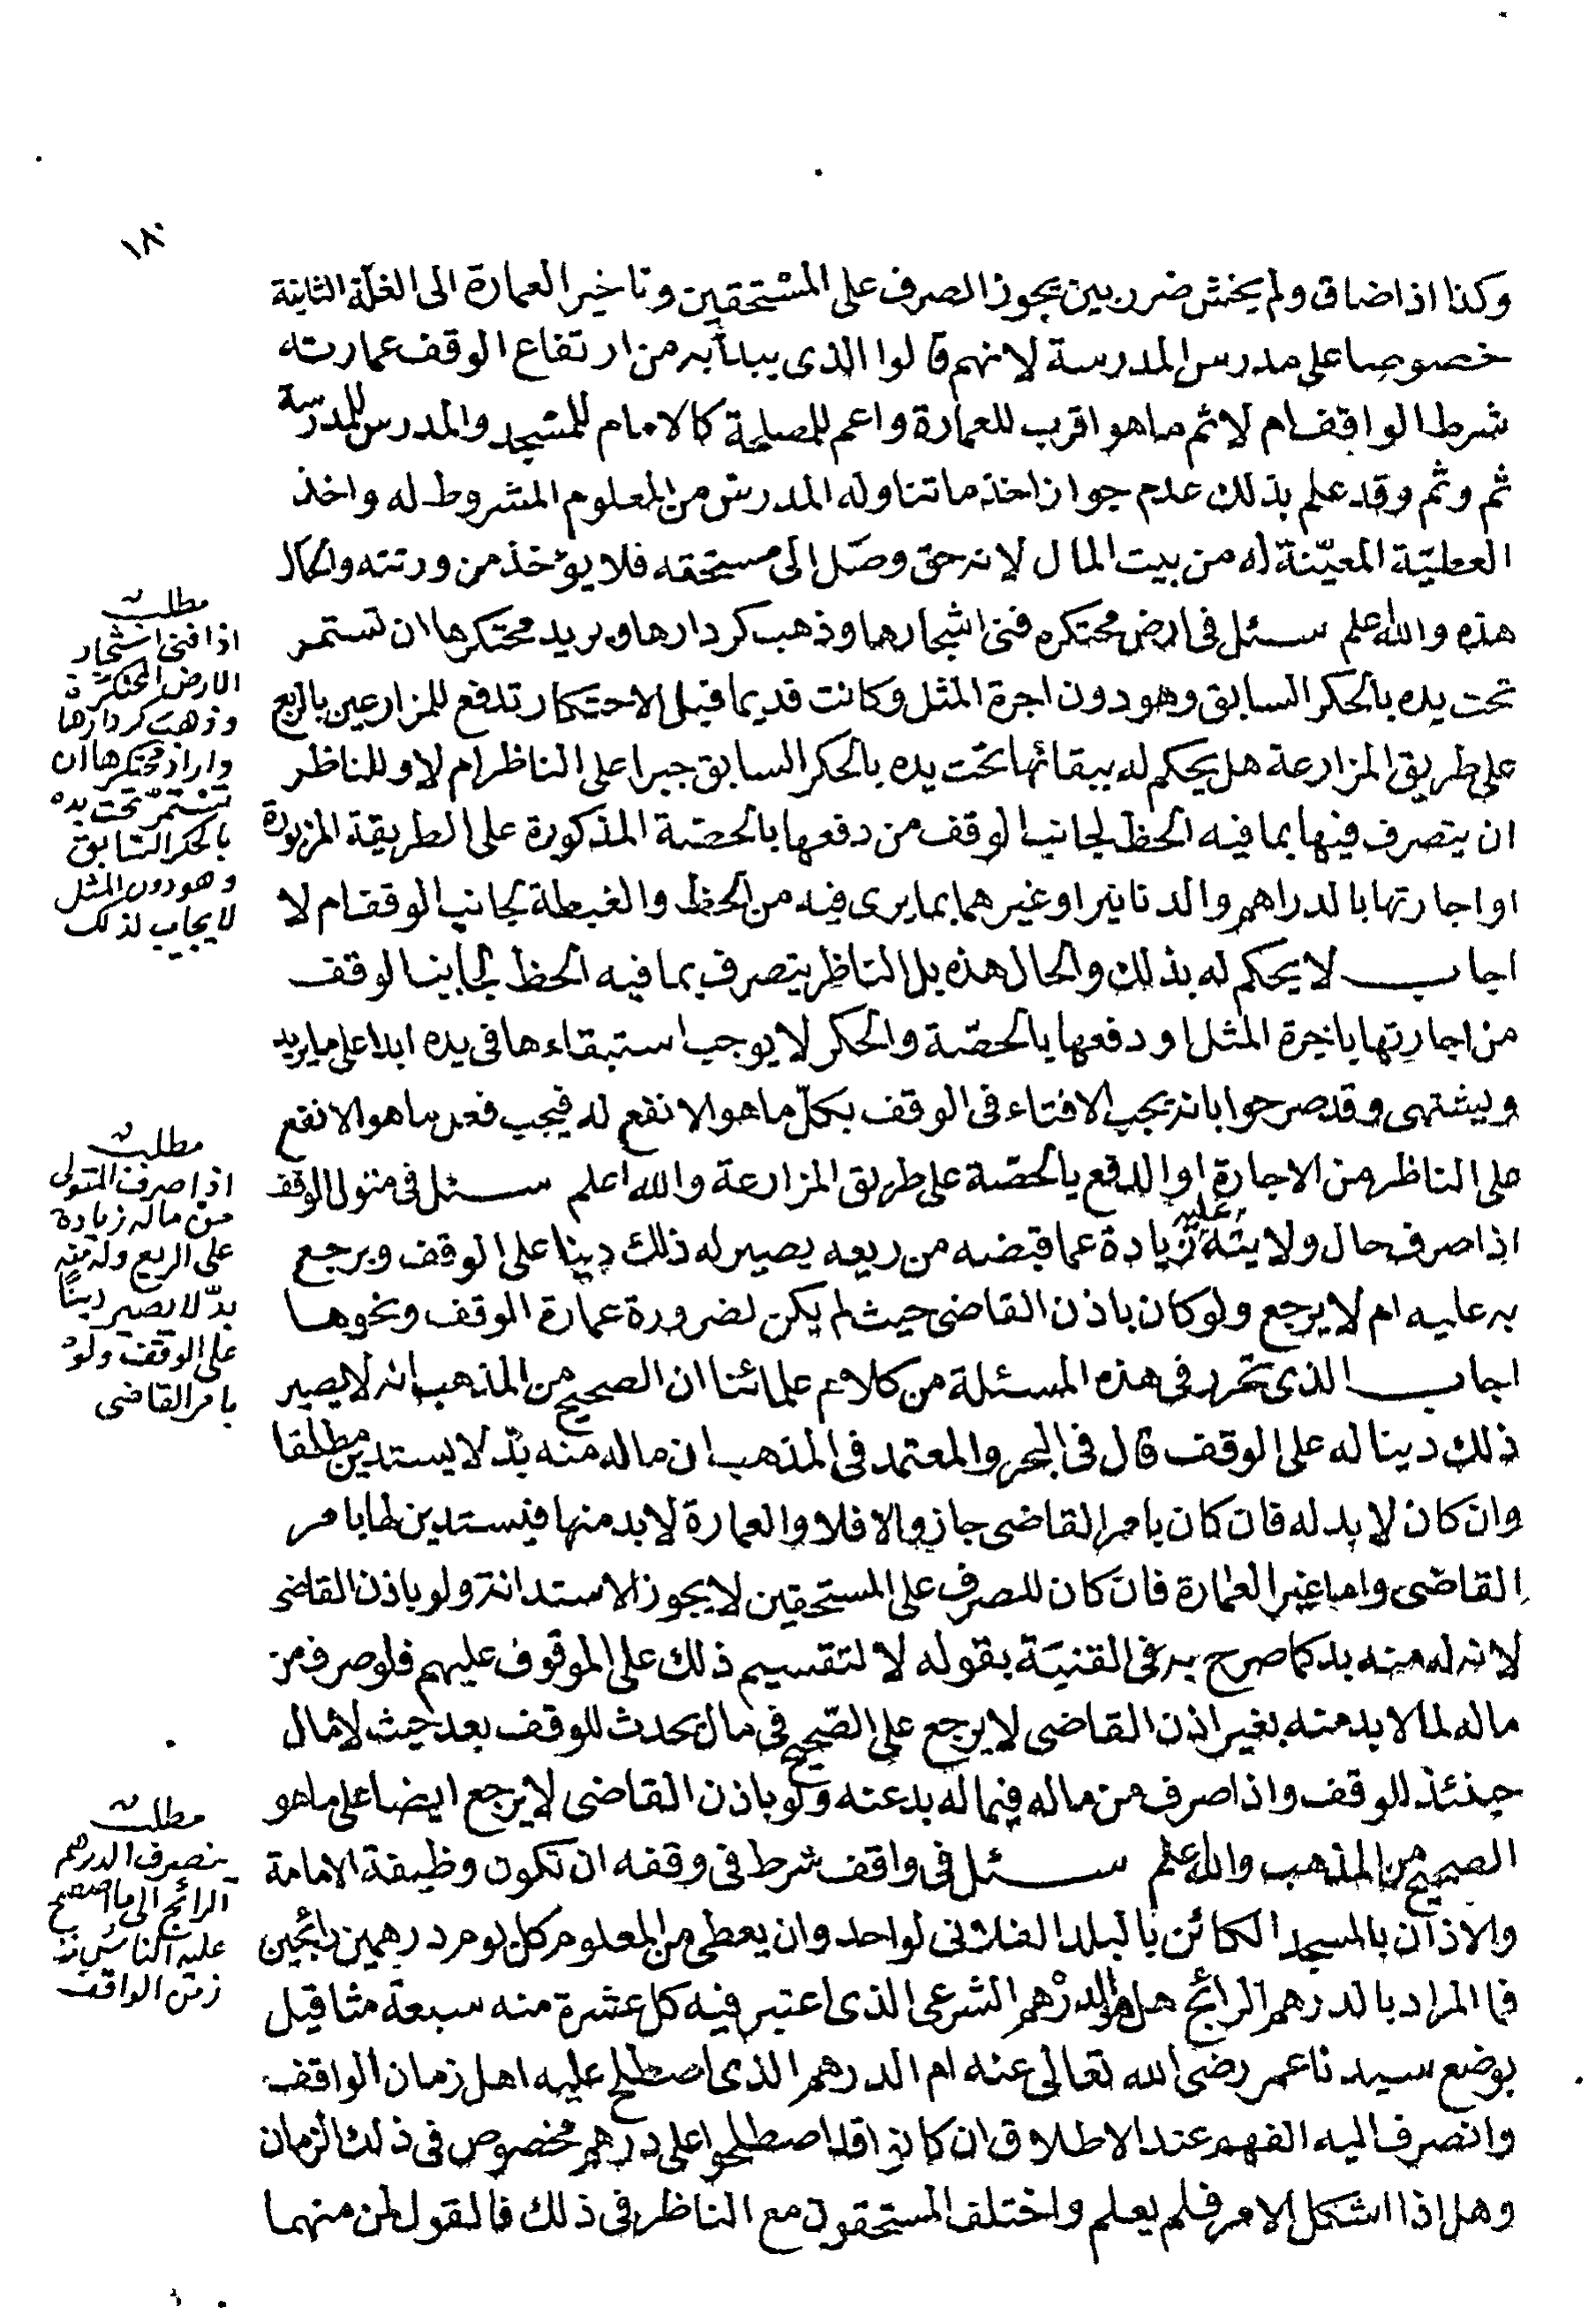 ١٨٠
وكذا اذا ضاق ولم يخش ضرر بين يجوز الصرف على المستحقين وتاخير العمارة الى الغلة الثانية
خصوصا على مدرس المدرسة لانهم قالوا الذى يبدأ به من ارتفاع الوقف عمارته
شرط الواقف ام لا ثم ما هو اقرب للعمارة واعم للمصلحة كالامام للمسجد والمدرس للمدرسة
ثم وثم وقد علم بذلك عدم جواز اخذ ما تناوله المدرس من المعلوم المشروط له واخذ
العطيّة المعيّنة له من بيت المال لانه حق وصل الى مستحقه فلا يؤخذ من ورثته والحال
هذه والله اعلم سئل فى ارض محتكره فنى اشجارها وذهب كردارها ويريد محتكرها ان تستمر
تحت يده بالحكر السابق وهو دون اجرة المثل وكانت قديما قبل الاحتكار تدفع للمزارعين بالربع
على طريق المزارعة هل يحكم له ببقائها تحت يده بالحكر السابق جبرا على الناظر ام لا وللناظر
ان يتصرف فيها بما فيه الحظ لجانب الوقف من دفعها بالحصّة المذكورة على الطريقة المزبورة
او اجارتها بالدراهم والدنانير او غيرهما بما يرى فيه من الحظ والغبطة لجانب الوقف ام لا
اجاب لا يحكم له بذلك والحال هذه بل الناظر يتصرف بما فيه الحظ لجانب الوقف
من اجارتها باجرة المثل او دفعها بالحصّة والحكر لا يوجب استبقاءها فى يده ابدا على ما يريد
ويشتهى وقد صرحوا بانه يجب الافتاء فى الوقف بكلّ ما هو الانفع له فيجب فعل ما هو الانفع
على الناظر من الاجارة او الدفع بالحصّة على طريق المزارعة والله اعلم سئل فى متولى الوقف
اذا صرف حال ولايته عليه زيادة عما قبضه من ريعه يصير له ذلك دينا على الوقف ويرجع
به عليه ام لا يرجع ولو كان باذن القاضى حيث لم يكن لضرورة عمارة الوقف ونحوها
اجاب الذى تحرر فى هذه المسئلة من كلام علمائنا ان الصحيح من المذهب انه لا يصير
ذلك دينا له على الوقف قال فى البحر والمعتمد فى المذهب ان ماله منه بدّ لا يستدين مطلقا
وان كان لا بد له فان كان بامر القاضى جاز والا فلا والعمارة لا بد منها فيستدين لها بامر
القاضى واما غير العمارة فان كان للصرف على المستحقين لا يجوز الاستدانة ولو باذن القاضى
لانه له منه بد كما صرح به فى القنية بقوله لا لتقسيم ذلك على الموقوف عليهم فلو صرف من
ماله لما لا بد منه بغير اذن القاضى لا يرجع على الصّحيح فى مال يحدث للوقف بعد حيث لا مال
حينئذ للوقف واذا صرف من ماله فيما له بد عنه ولو باذن القاضى لا يرجع ايضا على ما هو
الصحيح من المذهب والله اعلم سئل فى واقف شرط فى وقفه ان تكون وظيفة الامامة
والاذان بالمسجد الكائن بالبلد الفلانى لواحد وان يعطى من المعلوم كل يوم درهمين رائجين
فما المراد بالدرهم الرائج هل هو الدرهم الشرعى الذى اعتبر فيه كل عشرة منه سبعة مثاقيل
بوضع سيدنا عمر رضى الله تعالى عنه ام الدرهم الذى اصطلح عليه اهل زمان الواقف
وانصرف اليه الفهم عند الاطلاق ان كانوا قد اصطلحوا على درهم مخصوص فى ذلك الزمان
وهل اذا اشكل الامر فلم يعلم واختلف المستحقون مع الناظر فى ذلك فالقول لمن منهما
مطلب
اذا فنى اشجار
الارض المحتكرة
وذهب كردارها
واراد محتكرها ان
تستمر تحت يده
بالحكر السابق
وهو دون المثل
لا يجاب لذلك
مطلب
اذا صرف المتولى
من ماله زيادة
على الريع وله منه
بدّ لا يصير دينًا
على الوقف ولو
بامر القاضى
مطلب
ينصرف الدرهم
الرائج الى ما اصطلح
عليه الناس فى
زمن الواقف